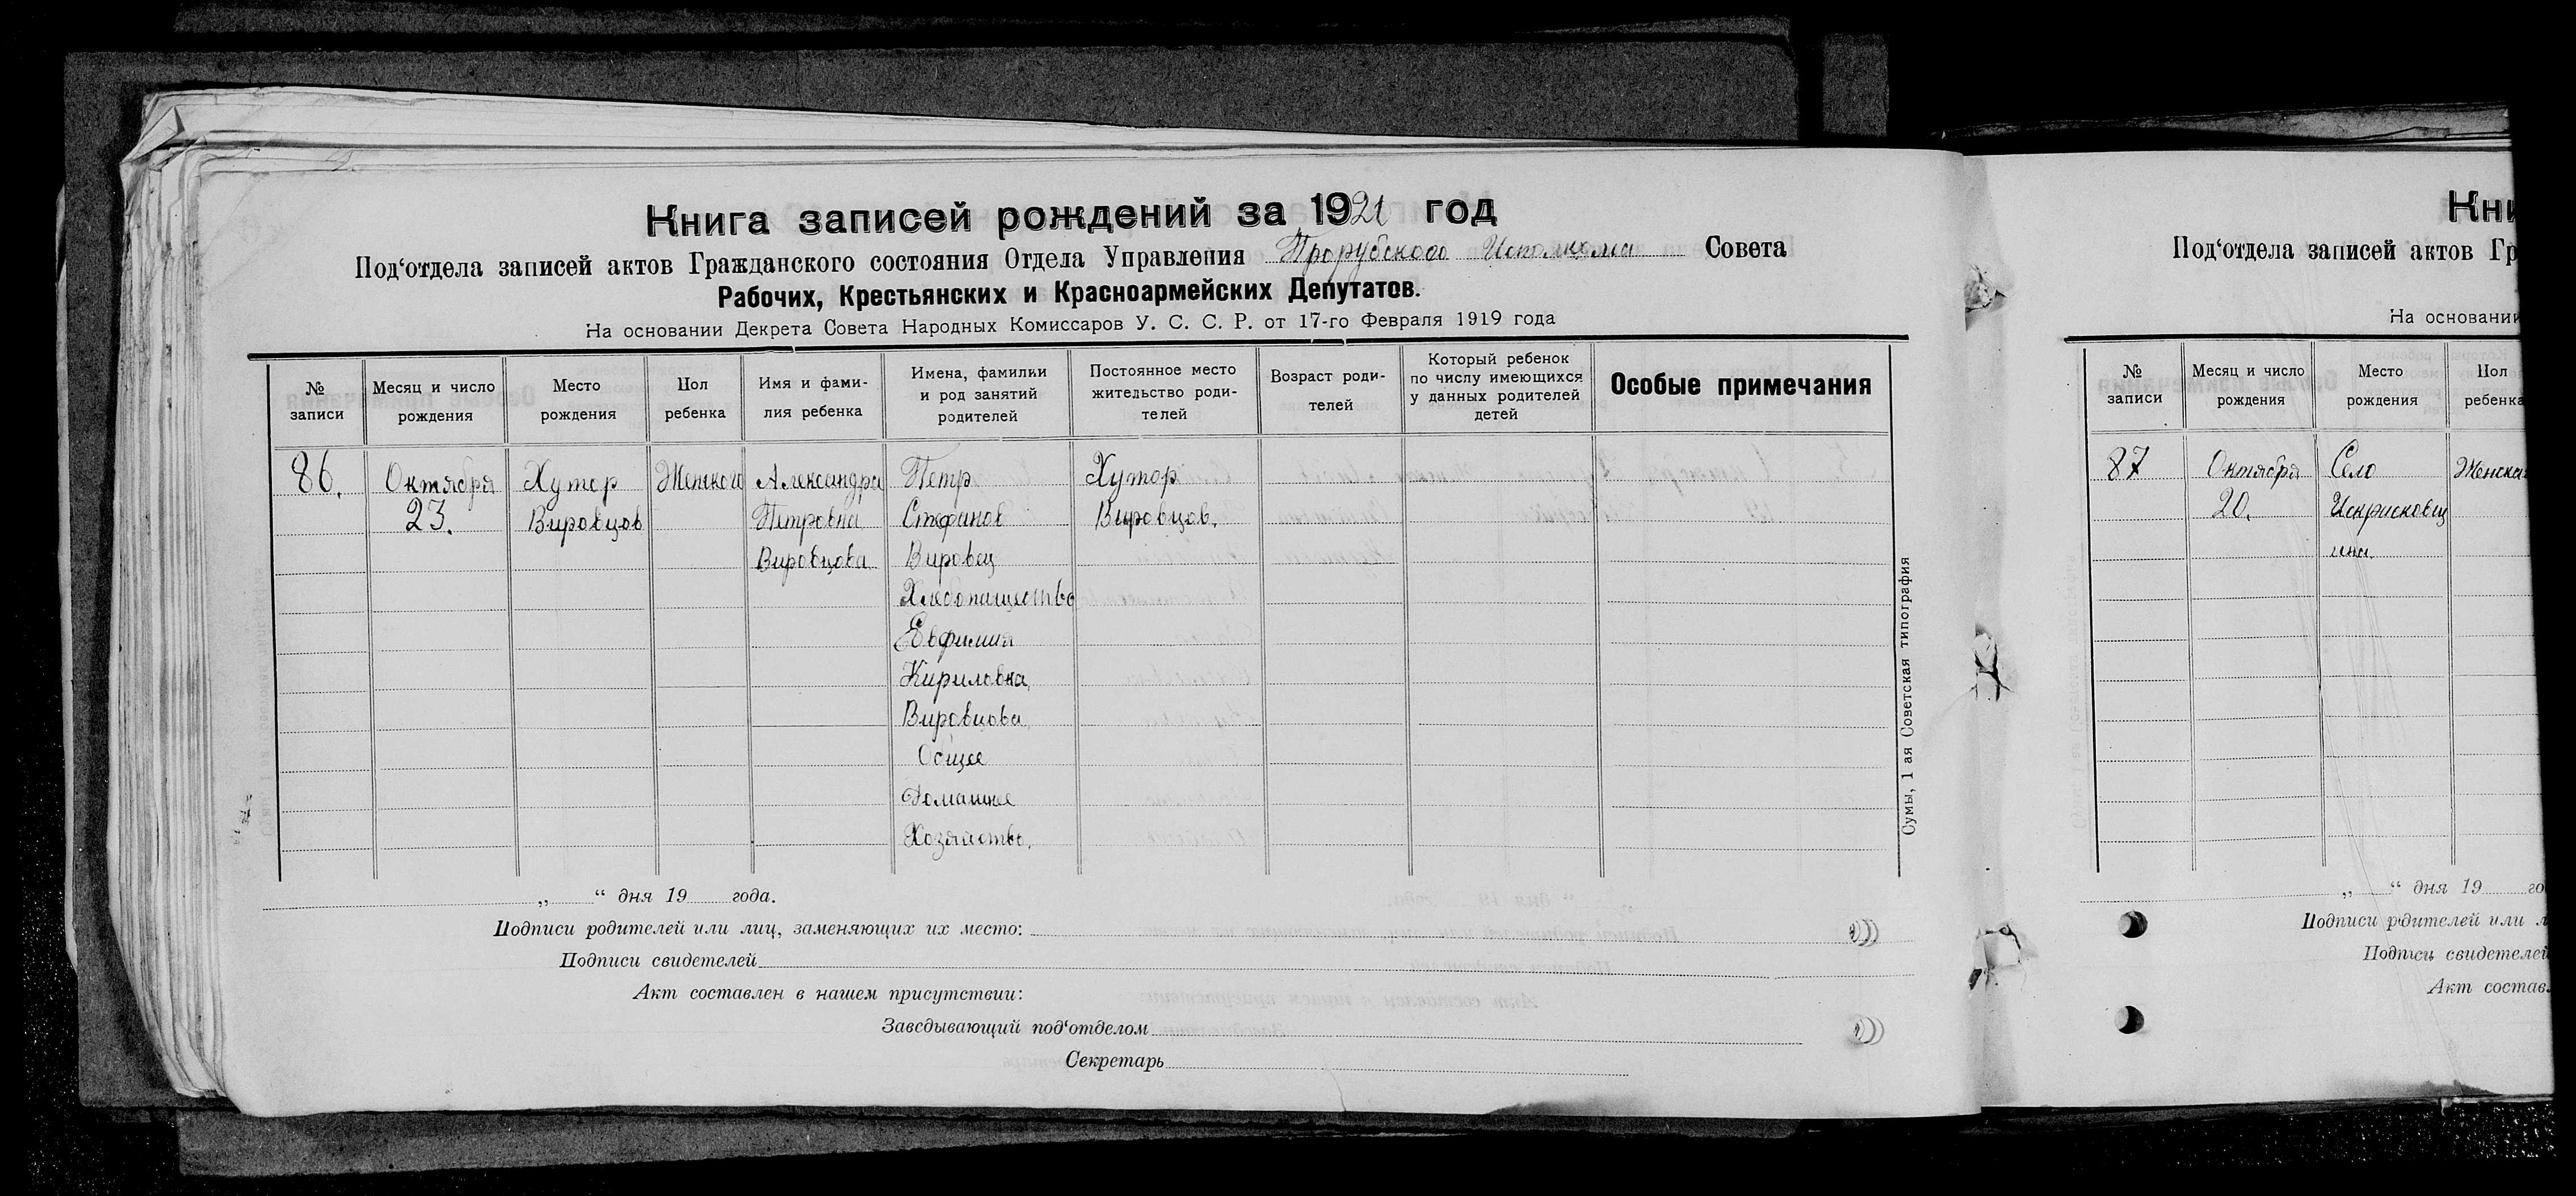 Книга записей рождений за 1921 год
Под‘отдела записей актов Гражданского состояния Отдела Управления Прорубского Исполкома Совета
Рабочих, Крестьянских и Красноармейских Депутатов.
На основании Декрета Совета Народных Комиссаров У. С. С. Р. от 17-го Февраля 1919 года
№ записи
Месяц и число рождения
Место рождения
Пол ребенка
Имя и фами-
лия ребенка
Имена, фамилии
и род занятий
родителей
Постоянное место
жительство роди-
телей
Возраст роди-
телей
Который ребенок
по числу имеющихся
у данных родителей
детей
Особые примечания
86. Октября Хутор Женского Александра Петр Хутор
23. Вировцов Петровна Стефанов Вировцов.
Вировцова Вировец
Хлебопашество
Евфимия
Кириловна
Вировцова
Общее
Домашнее
Хозяйство.
„ “ дня 19 года.
Подписи родителей или лиц, заменяющих их место:
Подписи свидетелей
Акт составлен в нашем присутствии:
Заведывающий под‘отделом
Секретарь
Сумы, 1 ая Советская типография
Кни
Под‘отдела записей актов Гр
На основании
№ записи
Месяц и число рождения
Место рождения
Пол ребенка
87 Октября Село Женская
20. Искрисковщ
ина.
„ “ дня 19 го
Подписи родителей или л
Подписи свидетелей
Акт состав